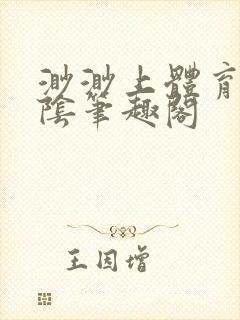 渺渺上體育
陰筆趣閣
王因增